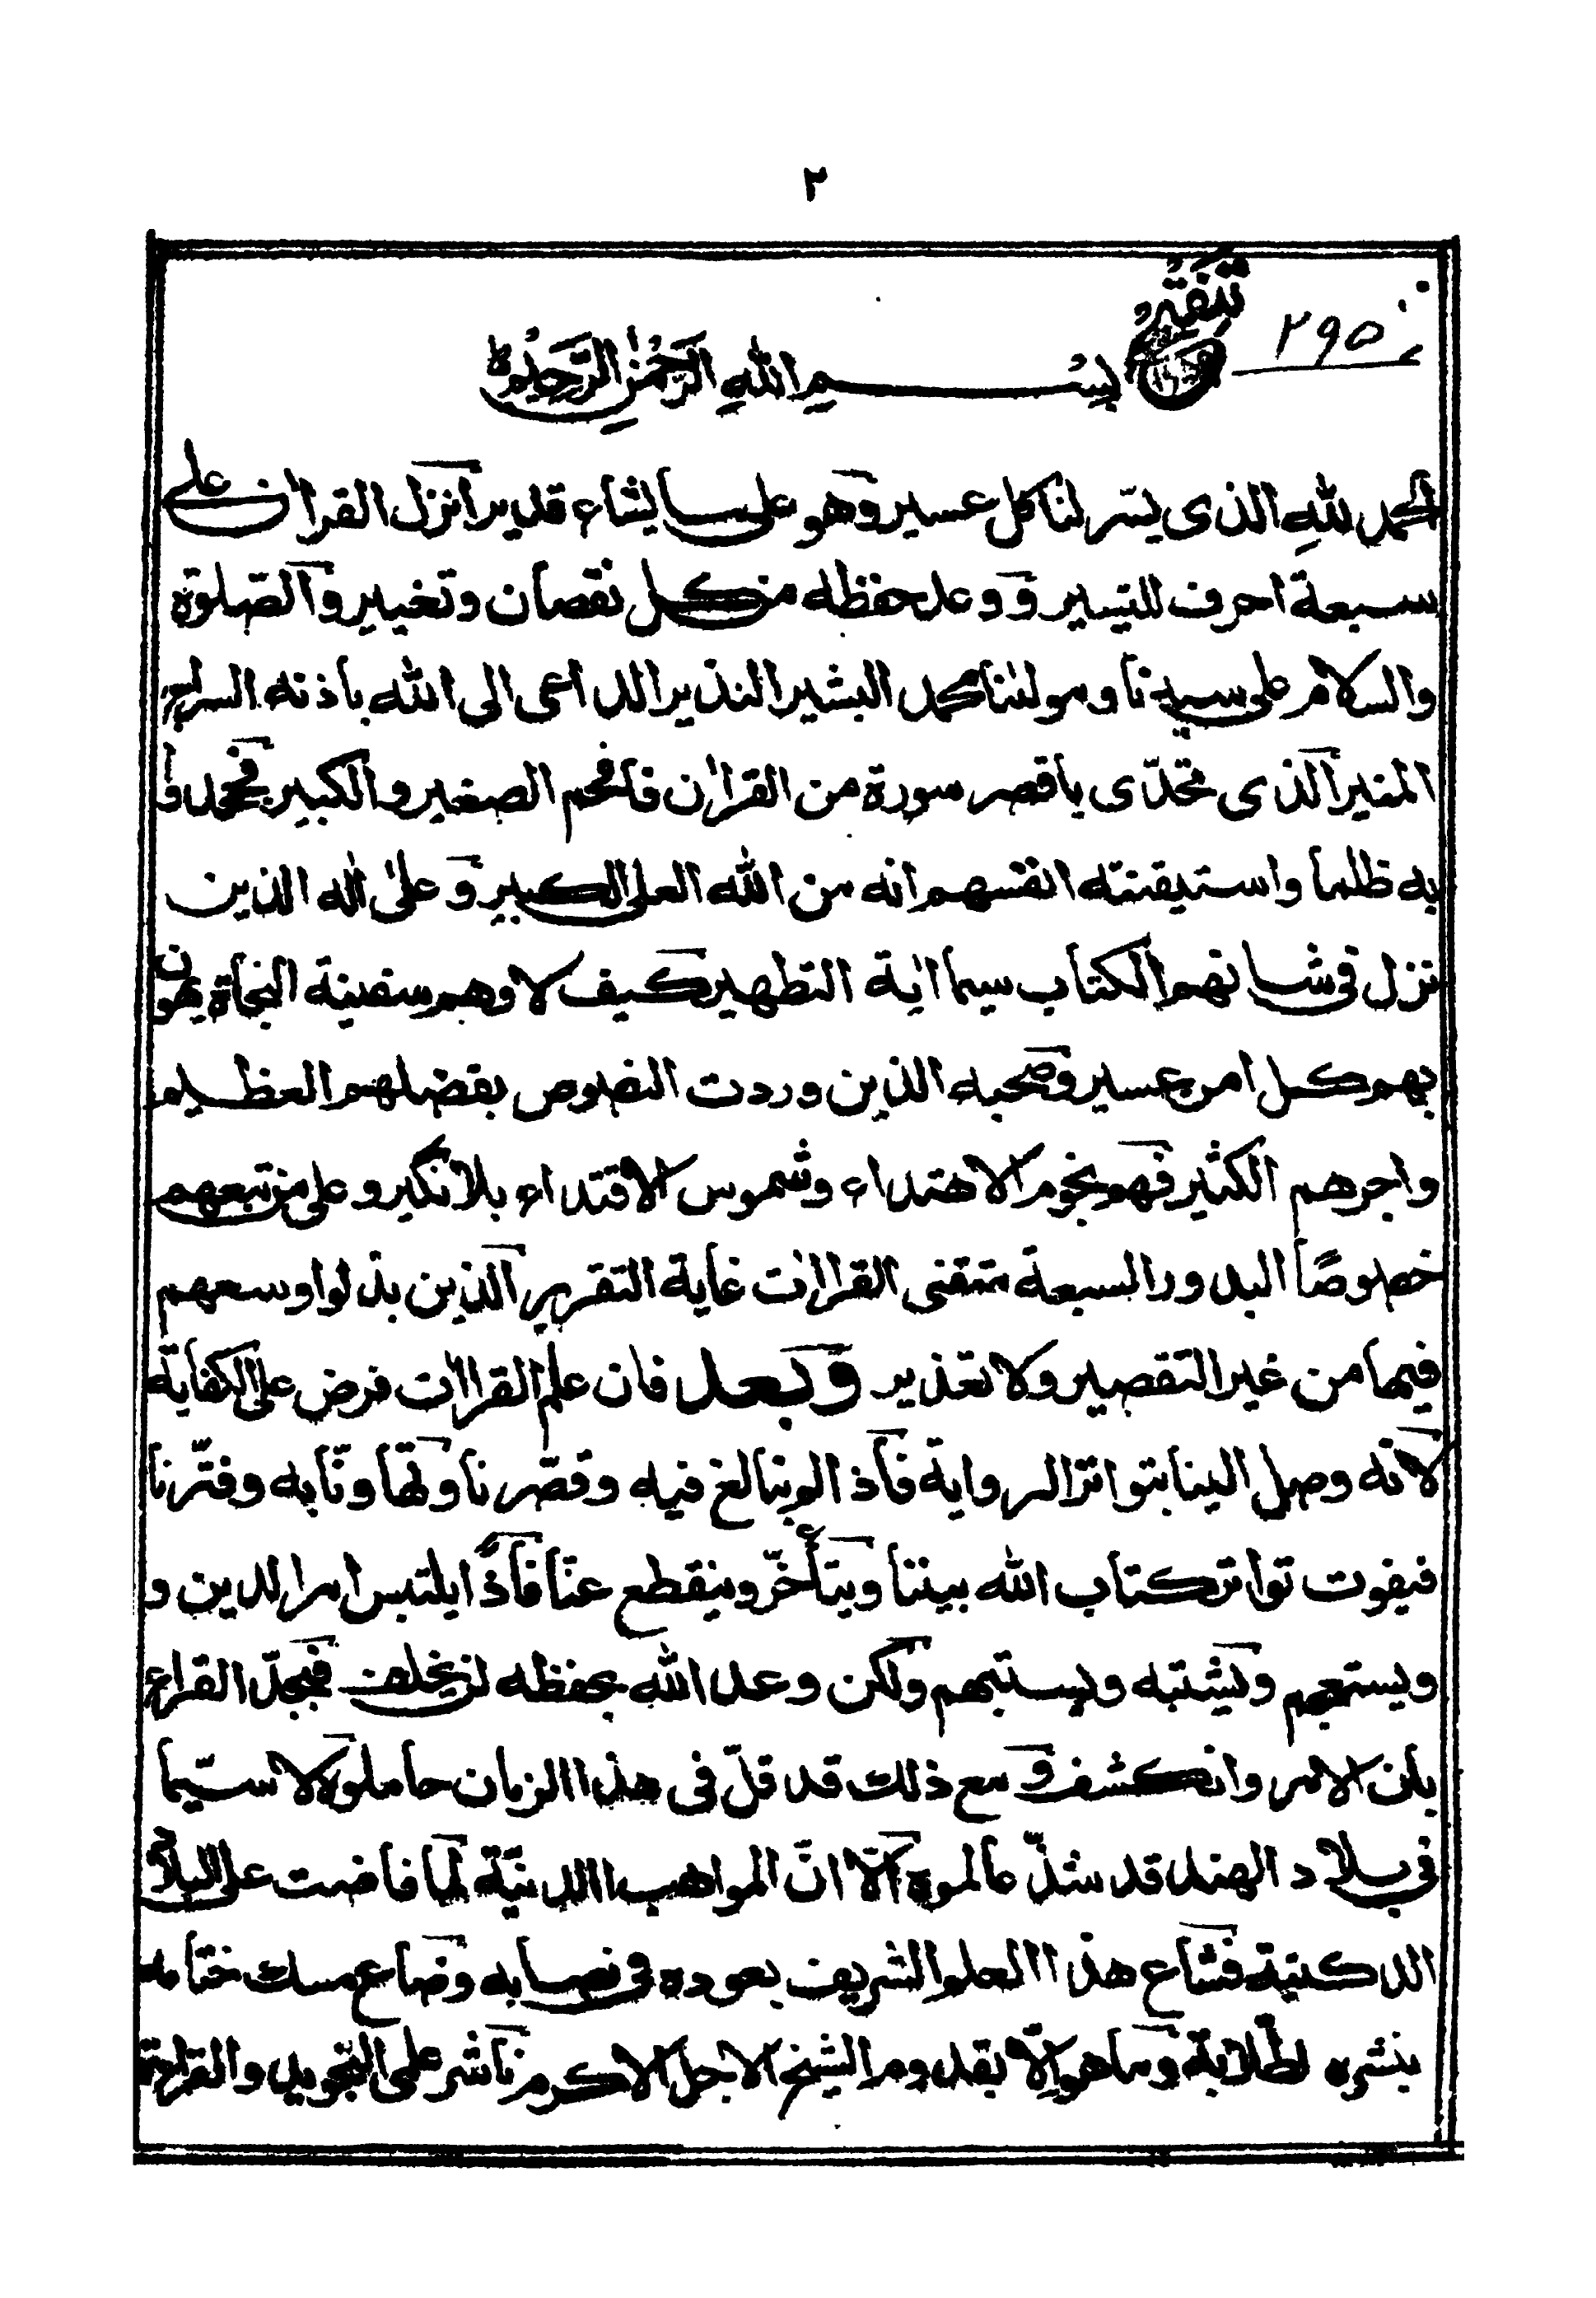 ٢
تنقيد
٢٩٥
بِسْمِ اللهِ الرَّحْمٰنِ الرَّحِيْمِ
الحمد للهِ الذى يسّر لنا كل عسير وهو على ما يشاء قدير انزل القراٰن على
سبعة احرف للتيسير و وعد حفظه من كل نقصان وتغيير والصّلوة
والسلام على سيدنا ومولٰنا محمد البشير النذير الداعى الى الله باذنه السراج
المنير الذى تحدّى باقصر سورة من القراٰن فافحم الصغير والكبير فجحدوا
به ظلما واستيقنته انفسهم انه من الله العلى الكبير وعلىٰ اٰله الذين
نزل فى شانهم الكتاب سيما اٰية التطهير كيف لا وهم سفينة النجاة يهون
بهم كل امر عسير وصحبه الذين وردت النصوص بفضلهم العظيم
واجرهم الكثير فهم نجوم الاهتداء وشموس الاقتداء بلا نكير وعلى من تبعهم
خصوصًا البدور السبعة متقنى القرااٰت غاية التقرير الذين بذلوا وسعهم
فيها من غير التقصير ولا تعذير وبعد فان علم القرااٰت فرض على الكفاية
لانه وصل الينا بتواتر الرواية فاذا لم نبالغ فيه وقصّرنا ولهّاونّا به وفتّرنا
فيفوت تواتر كتاب الله بيننا ويتأخّر وينقطع عنّا فاذًا يلتبس امر الدين و
ويستعجم ويشتبه ويستبهم ولكن وعد الله بحفظه لن يخلف فبجدّ القراء
بان الامر وانكشف و مع ذلك قد قلّ فى هذا الزمان حاملوه لا سيّما
فى بلاد الهند قد شذّ عالموه الّا انّ المواهب اللدنيّة لمّا فاضت على البلاد
الدكنية فشاع هذا العلم الشريف بعوده فى نصابه وضاع مسك ختامه
بنشره لطلّابهٖ وما هو الّا بقدوم الشيخ الاجل الاكرم ناشر على التجويد والقراءة